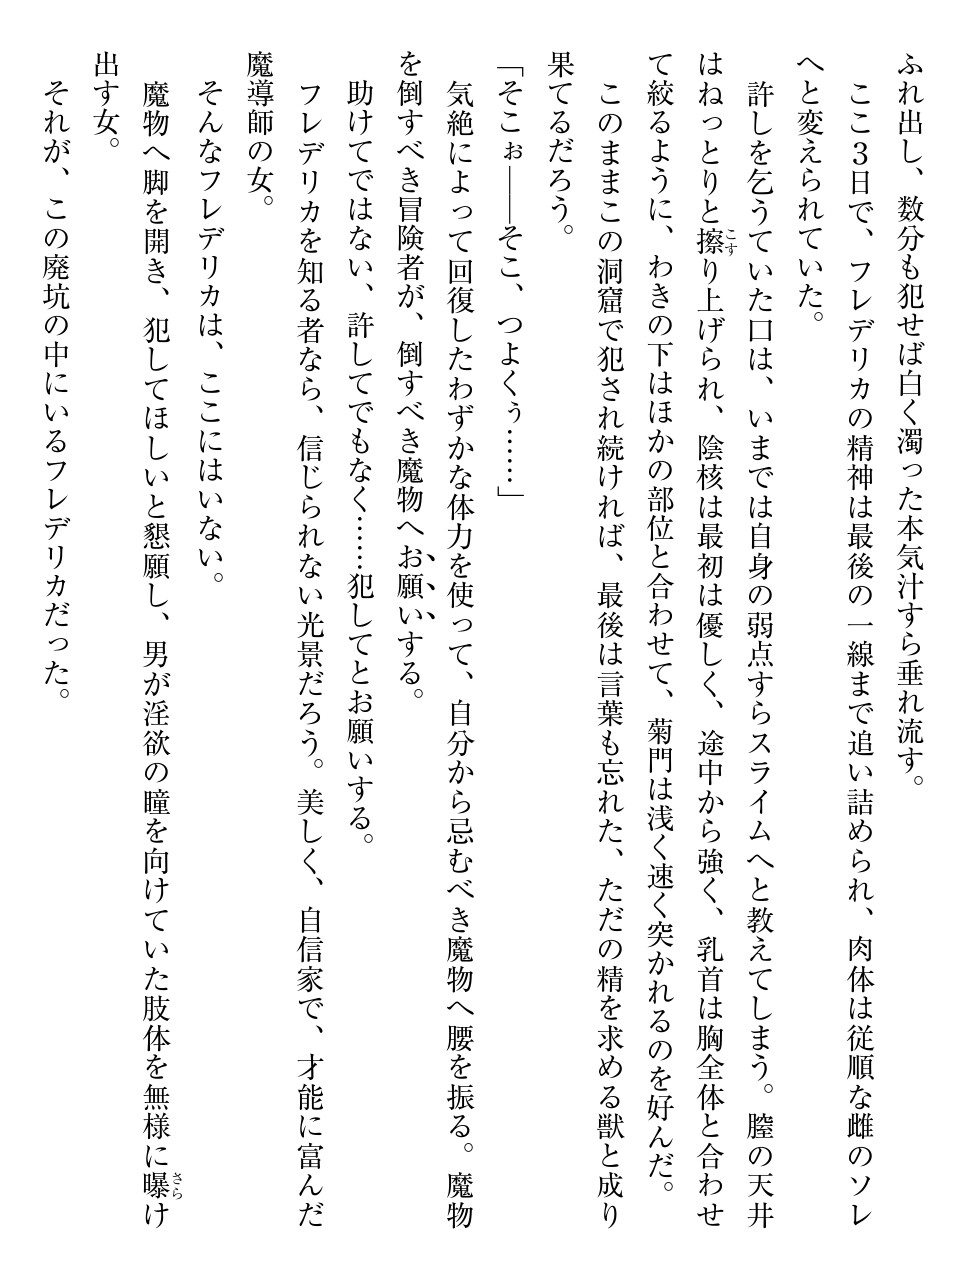 ふれ出し、数分も犯せば白く濁った本気汁すら垂れ流す。
ここ３日で、フレデリカの精神は最後の一線まで追い詰められ、肉体は従順な雌のソレ
へと変えられていた。
許しを乞うていた口は、いまでは自身の弱点すらスライムへと教えてしまう。膣の天井
はねっとりと擦り上げられ、陰核は最初は優しく、途中から強く、乳首は胸全体と合わせ
て絞るように、わきの下はほかの部位と合わせて、菊門は浅く速く突かれるのを好んだ。
このままこの洞窟で犯され続ければ、最後は言葉も忘れた、ただの精を求める獣と成り
果てるだろう。
「そこぉ――そこ、つよくぅ……」
気絶によって回復したわずかな体力を使って、自分から忌むべき魔物へ腰を振る。魔物
を倒すべき冒険者が、倒すべき魔物へお願いする。
助けてではない、許してでもなく……犯してとお願いする。
フレデリカを知る者なら、信じられない光景だろう。美しく、自信家で、才能に富んだ
魔導師の女。
そんなフレデリカは、ここにはいない。
魔物へ脚を開き、犯してほしいと懇願し、男が淫欲の瞳を向けていた肢体を無様に曝け
出す女。
それが、この廃坑の中にいるフレデリカだった。